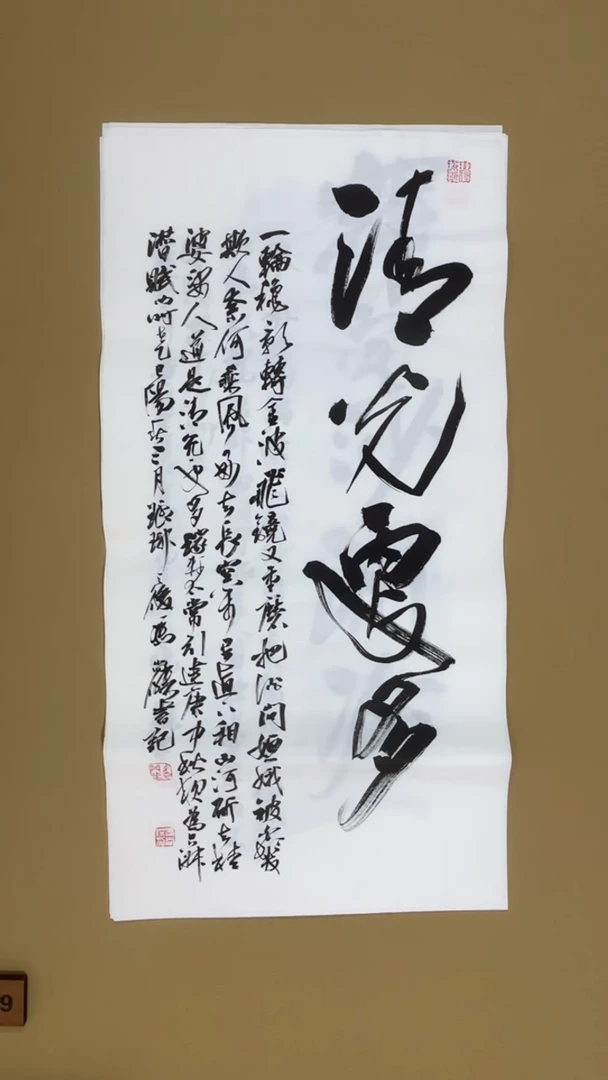 清光更多
一輪穐影轉金波飛鏡又重磨把酒問姮娥被白髮
欺人奈何乘風好去長空万里直下相山河斫去桂
婆娑人道是清光更多太常引建康中秋夜為呂叔
潛賦時乙巳陽春三月琅琊書記
9